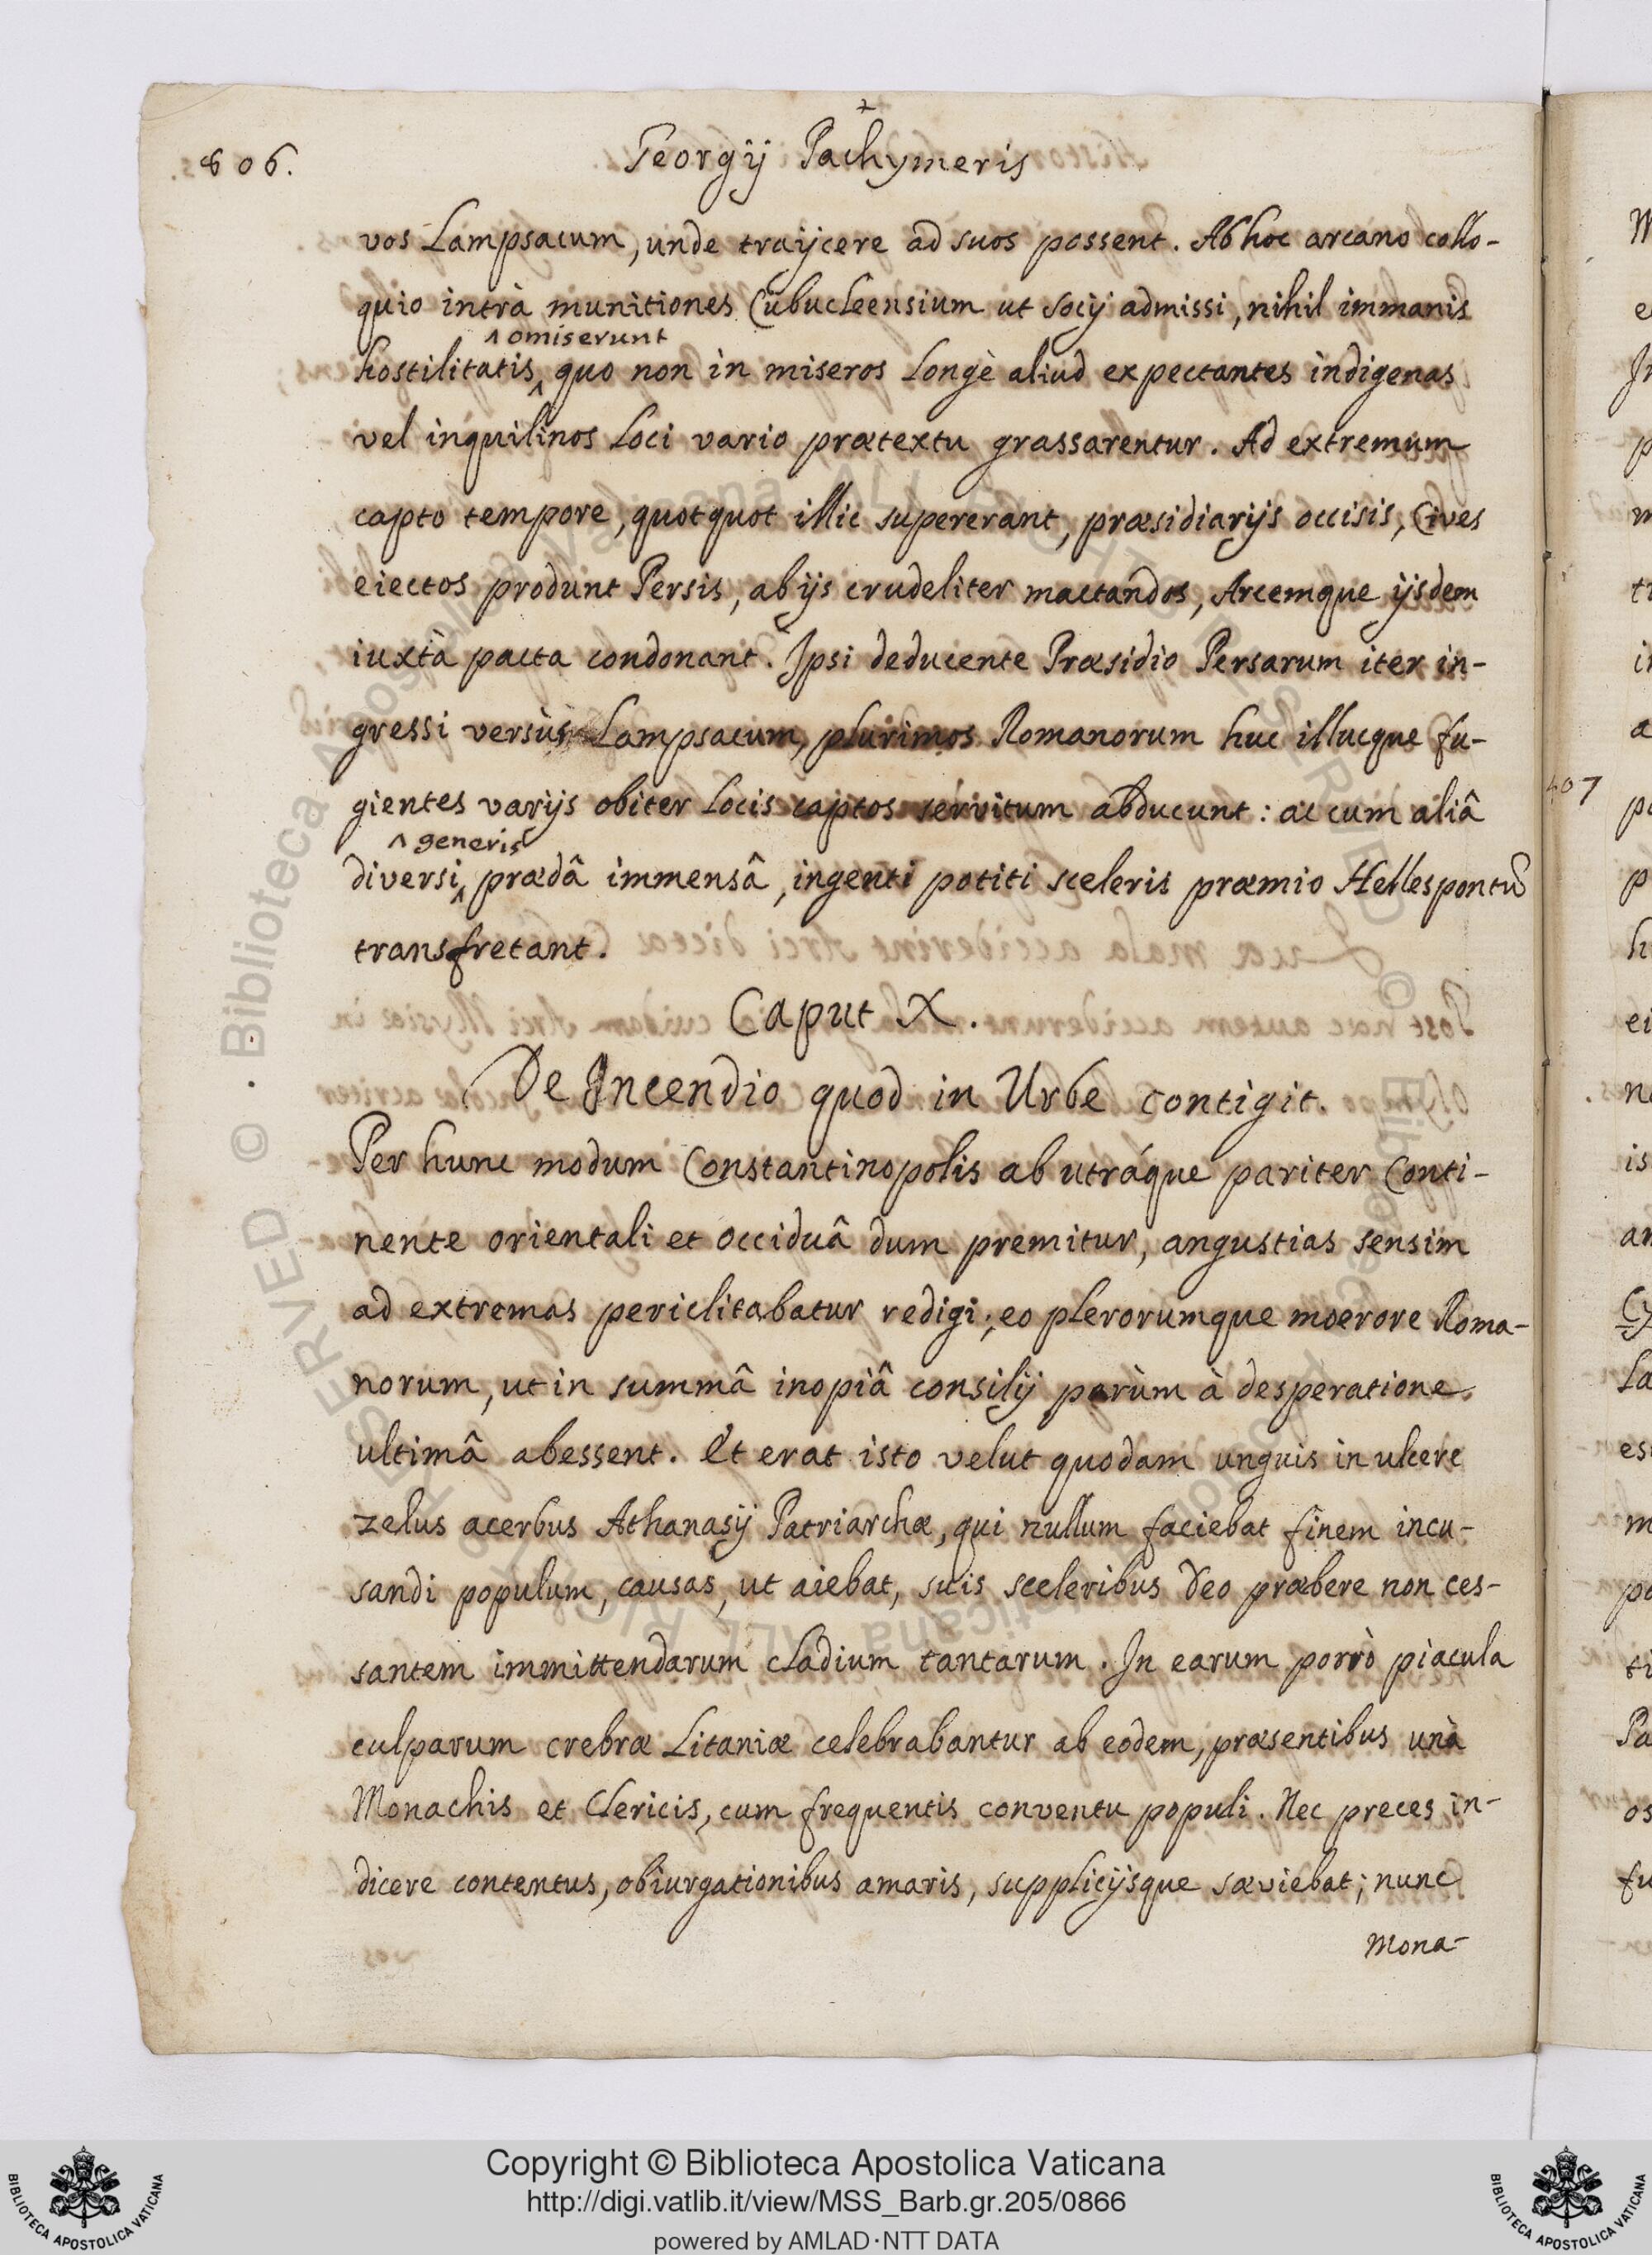 806.
Georgij Pachymeris
vos Lampsacum, unde traijcere ad suos possent. Ab hoc arcano collo-
quio intrà munitiones Cubucleensium ut socij admissi, nihil immanis
^ omiserunt
hostilitatis^ quo non in miseros longè aliud expectantes indigenas
vel inquilinos loci vario prætextu grassarentur. Ad extremum
capto tempore, quotquot illic supererant, præsidiarijs occisis, Cives
eiectos produnt Persis, ab ijs crudeliter mactandos, Arcemque ijsdem
iuxtà pacta condonant. Ipsi deducente Præsidio Persarum iter in-
gressi versùs Lampsacum, plurimos Romanorum huc illucque fu-
gientes varijs obiter locis captos servitum abducunt: ac cum aliâ
^ generis
diversi^ prædâ immensâ, ingenti potiti sceleris præmio Hellespontũ
transfretant.
Caput X.
De Incendio quod in Urbe contigit.
Per hunc modum Constantinopolis ab utráque pariter Conti-
nente orientali et occiduâ dum premitur, angustias sensim
ad extremas periclitabatur redigi; eo plerorumque moerore Roma-
norum, ut in summâ inopiâ consilij parùm à desperatione
ultimâ abessent. Et erat isto velut quodam unguis in ulcere
zelus acerbus Athanasij Patriarchæ, qui nullum faciebat finem incu-
sandi populum, causas, ut aiebat, suis sceleribus Deo præbere non ces-
santem immittendarum cladium tantarum. In earum porrò piacula
culparum crebræ Litaniæ celebrabantur ab eodem, præsentibus unà
Monachis et Clericis, cum frequentis conventu populi. Nec preces in-
dicere contentus, obiurgationibus amaris, supplicijsque sæviebat; nunc
Mona-
Copyright © Biblioteca Apostolica Vaticana
http://digi.vatlib.it/view/MSS_Barb.gr.205/0866
powered by AMLAD·NTT DATA
BIBLIOTECA APOSTOLICA VATICANA
BIBLIOTECA APOSTOLICA VATICANA